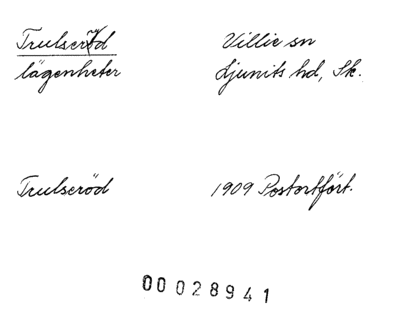 Trulseröd Villie sn
lägenheter Ljunits hd, Sk.
Trulseröd 1909 Postortfört.
00028941